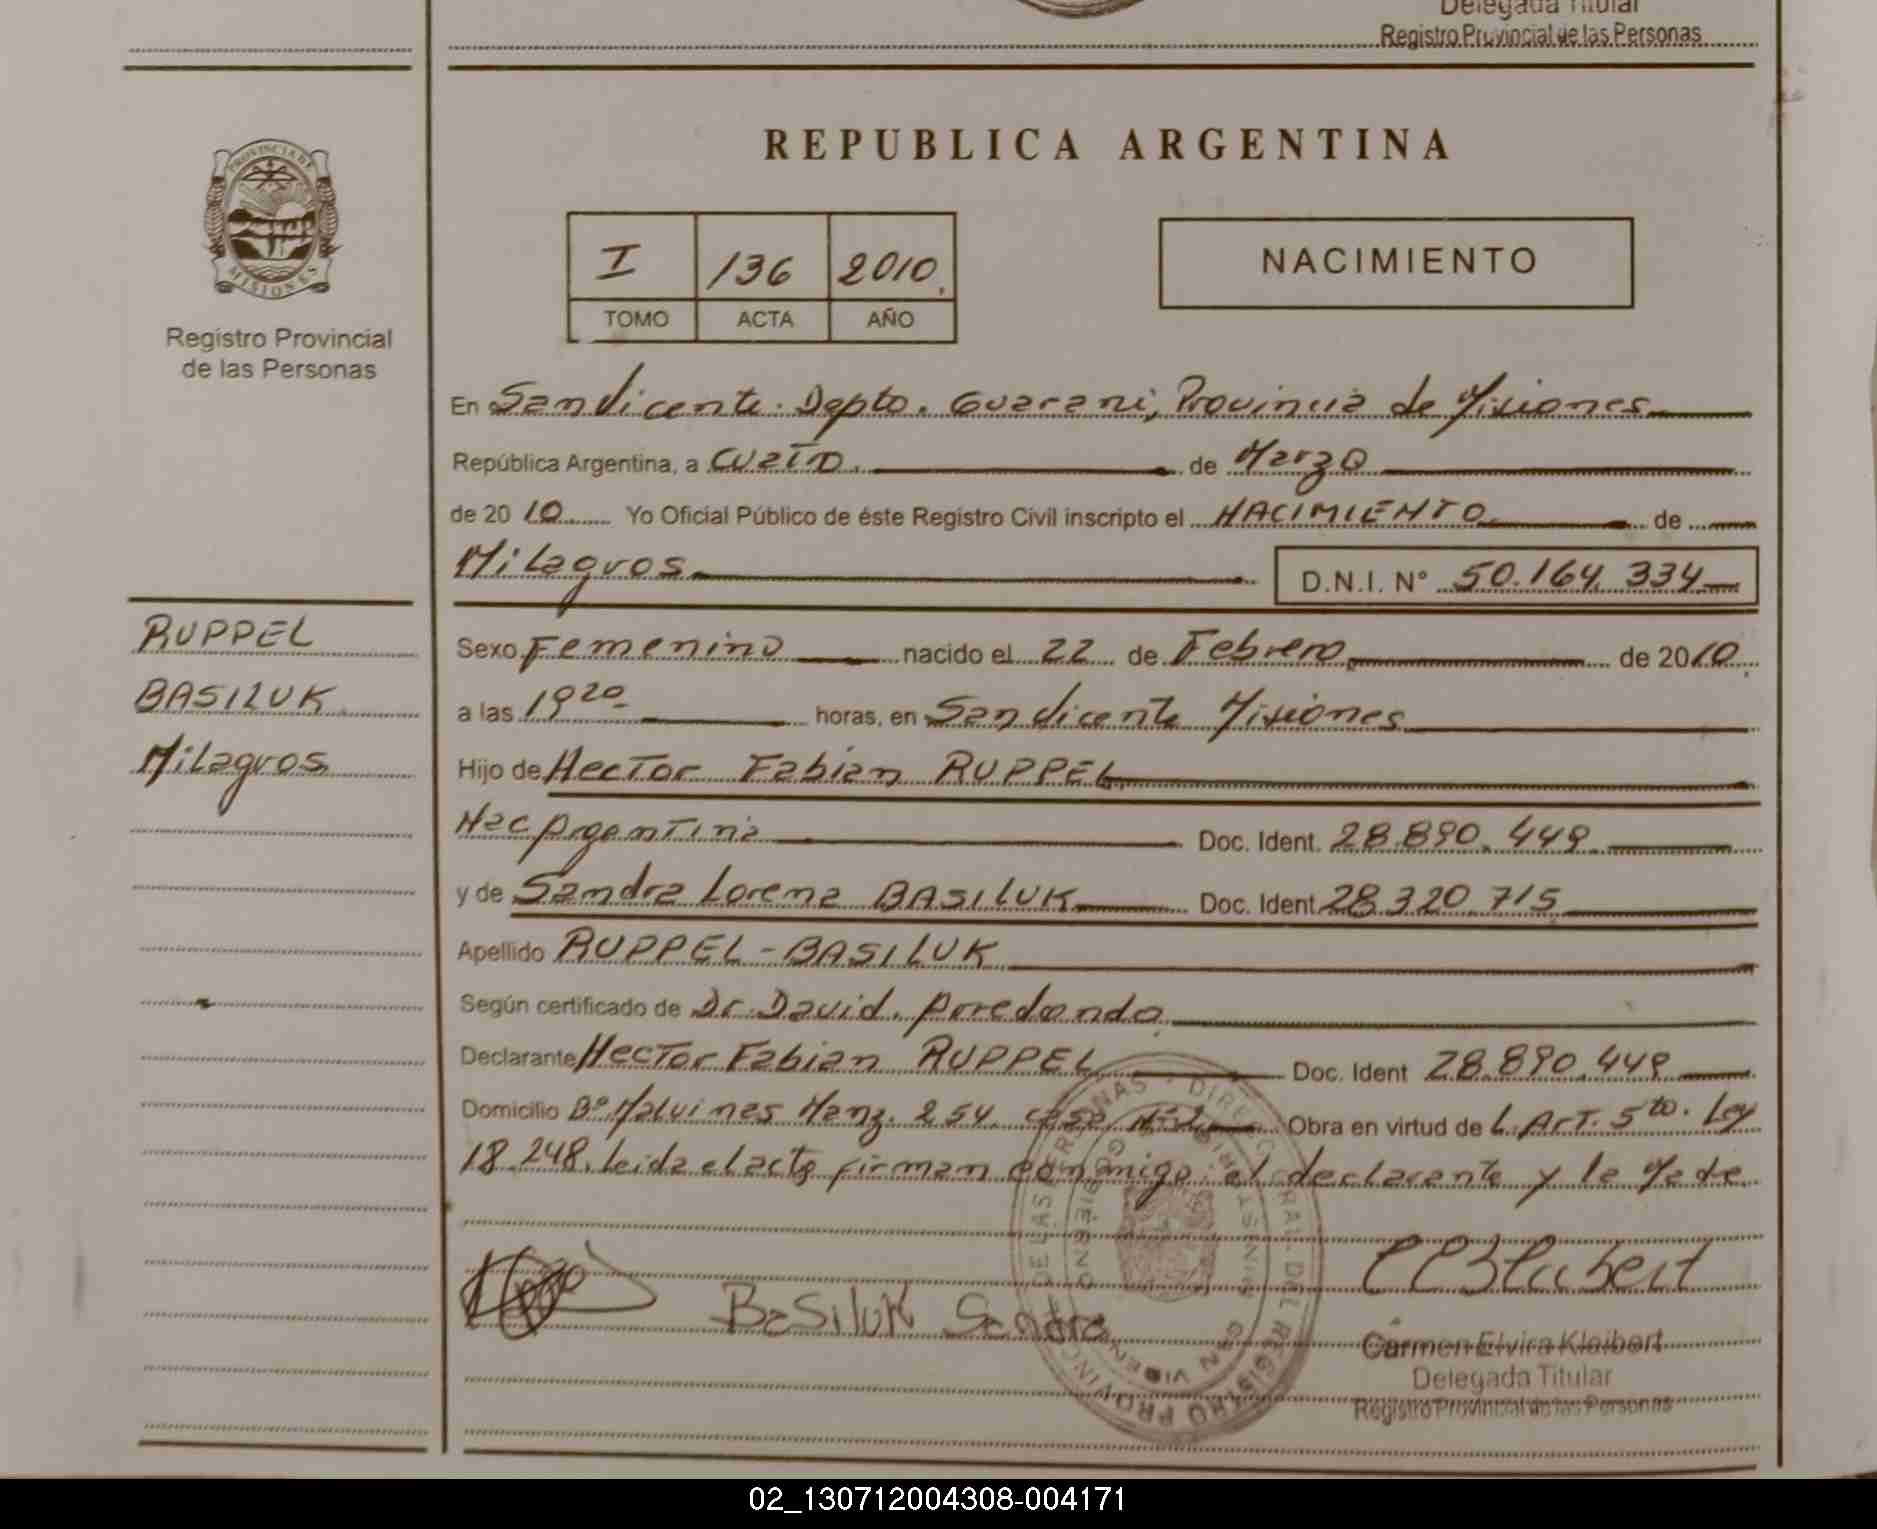 Delegada Titular
Registro Provincial de las Personas
PROVINCIA DE
MISIONES
Registro Provincial
de las Personas
REPUBLICA ARGENTINA
I 136 2010
TOMO ACTA AÑO
NACIMIENTO
En San Vicente. Depto. Guarani, Provincia de Misiones
República Argentina, a cuatro de Marzo
de 2010 Yo Oficial Público de éste Registro Civil inscripto el NACIMIENTO de
Milagros D.N.I. N° 50.164.334
RUPPEL
BASILUK
Milagros
Sexo Femenino nacido el 22 de Febrero de 2010
a las 19 20 horas, en San Vicente Misiones
Hijo de Hector Fabian RUPPEL
Nac Argentina Doc. Ident. 28.890.449
y de Sandra Lorena BASILUK Doc. Ident. 28.320.715
Apellido RUPPEL-BASILUK
Según certificado de Dr. David. Arredondo
Declarante Hector Fabian RUPPEL Doc. Ident 28.890.449
Domicilio B° Malvinas Manz. 254 casa Obra en virtud de L. Art. 5to. Ley
18.248. leida el acta firman conmigo el declarante y la Made
Basiluk Sandra
Carmen Elvira Kleibert
Delegada Titular
Registro Provincial de las Personas
02_130712004308-004171